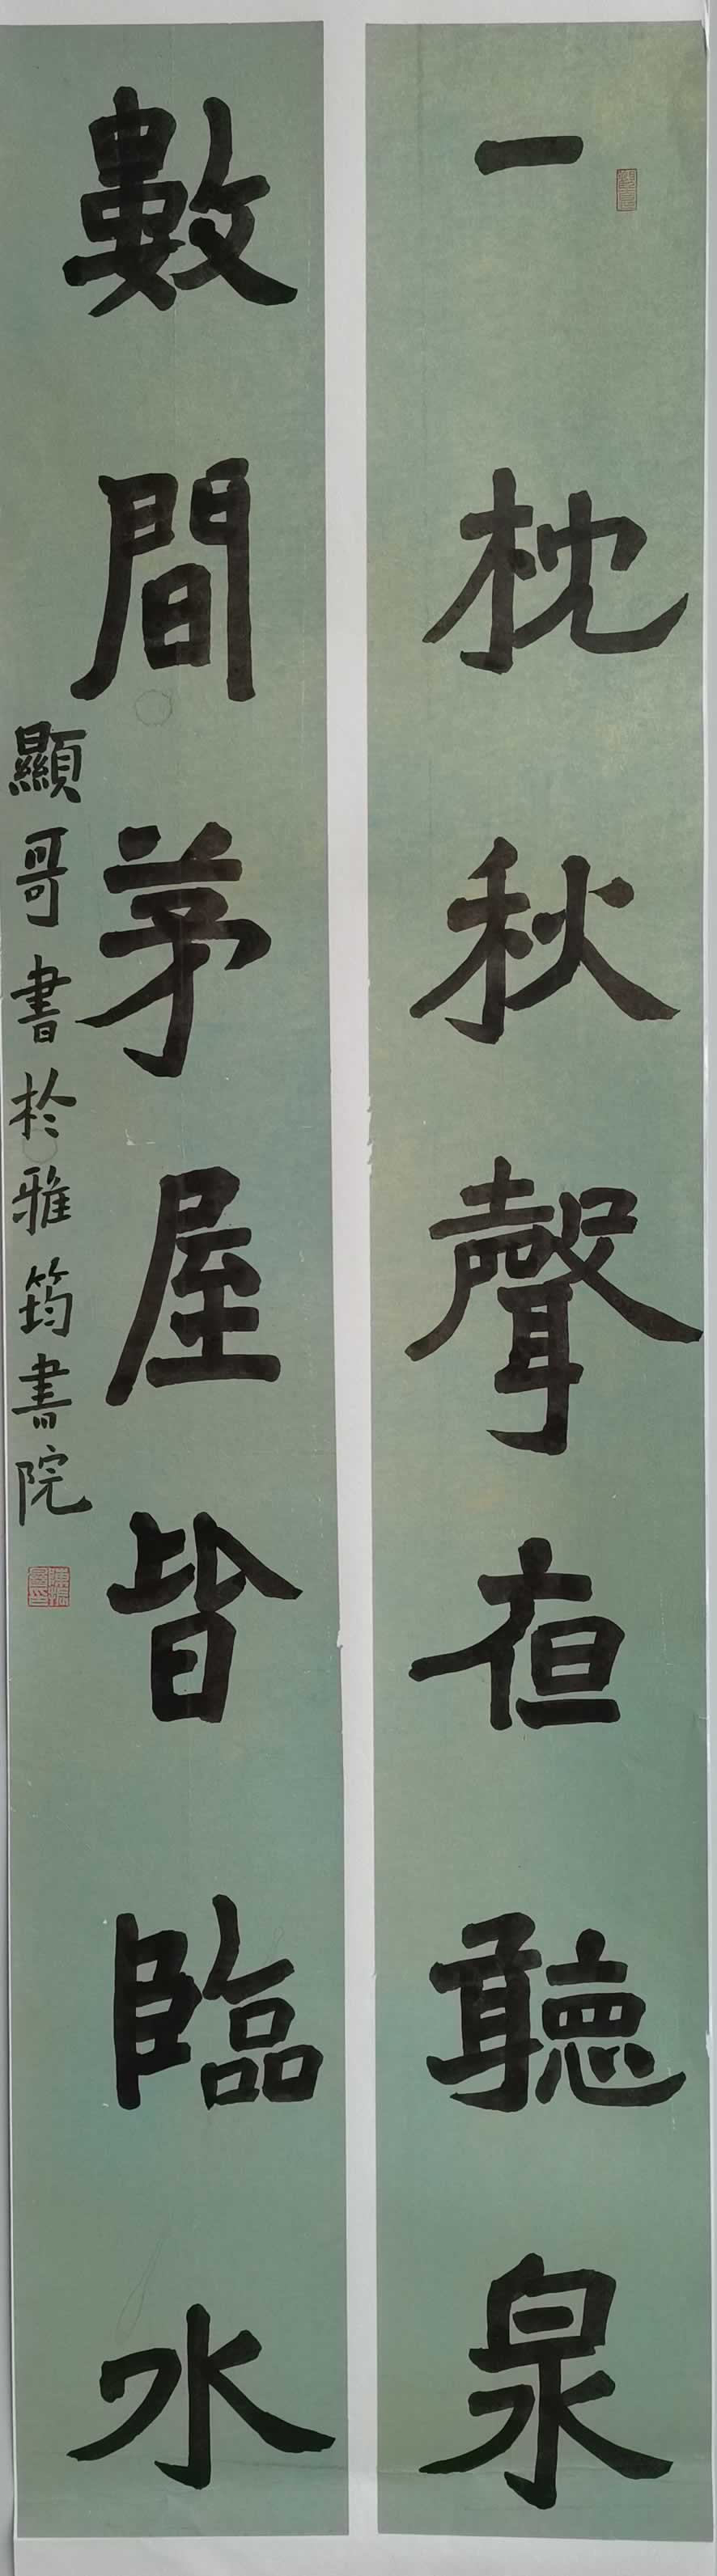 一枕秋聲夜聽泉
數間茅屋皆臨水
顯哥書於雅筠書院